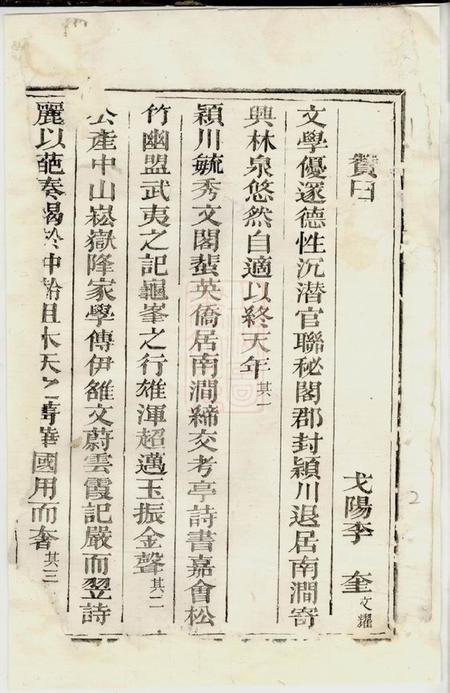 贊曰
弋陽李 奎文耀
文學優邃德性沉潛官聯秘閣郡封潁川退居南澗寄
興林泉悠然自適以終天年其一
潁川毓秀文閣蜚英僑居南澗締交考亭詩書嘉會松
竹幽盟武夷之記龜峯之行雄渾超邁玉振金聲其二
公產中山崧嶽降家學傳伊雒文蔚雲霞記嚴而翌詩
麗以葩奏 中 且 天之 華國用而奢其三
2